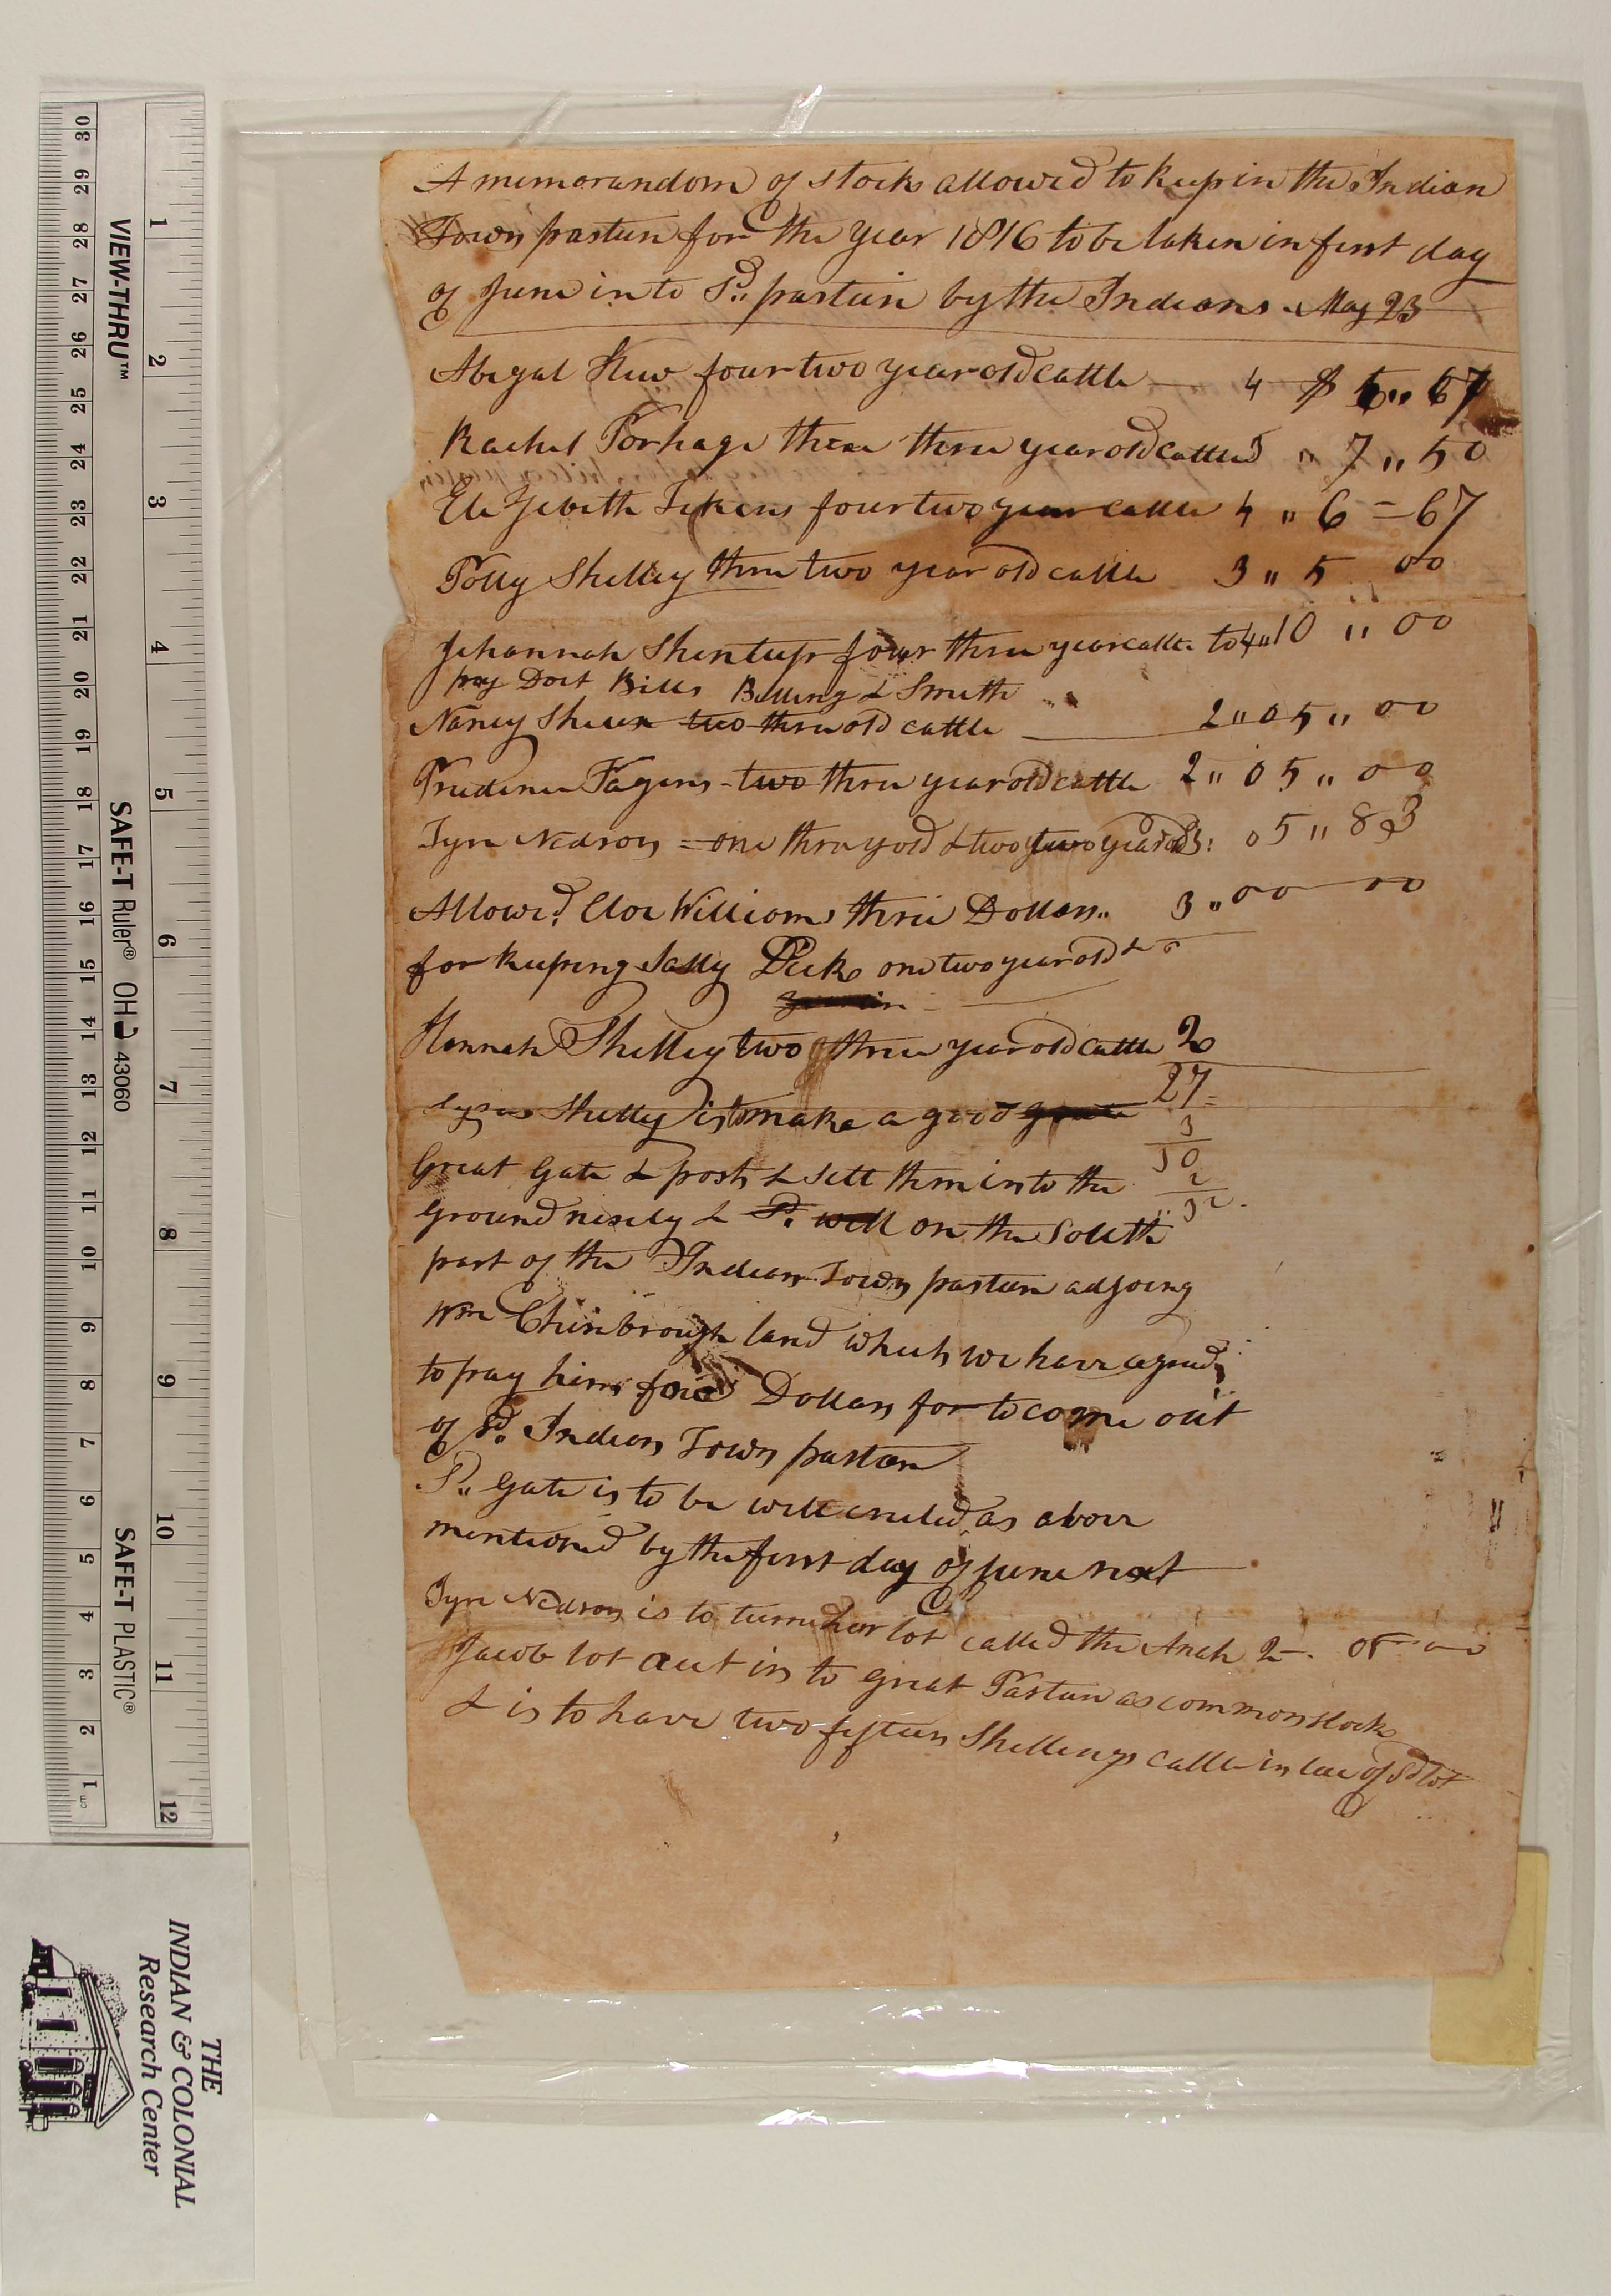 A memorandom of stock allowed to keep in the Indian
Town pasture for the year 1816 to be taken in first day
of June into Sd. pasture by the Indians - May 23
Abigal four two year old cattle 4 $ 6 " 67
Rachel three three year old cattle 3 " 7 " 50
four two year cattle 4 " 6 = 67
Polly Shelley three two year old cattle 3 " 5 00
Jehannah Shuntup four three year cattle to 4 " 10 " 00
pay Doct Bills Billing & Smith
Nancy two three old cattle 2 " 05 " 00
two three year old cattle 2 " 05 " 00
Tyra Nedson = one three y old & two two year old 3: 05 " 83
Allowed Cloe Williams three Dollars " 3 " 00 00
for keeping Sally one two year old
Hannah Shelley two three year old cattle 2
27
Shelley is to make a good
3
30
Great Gate & posts & sett them into the
2
32
ground nisely & Sd. well on the South
part of the Indian Town pasture adjoing
Wm Chisebrough land which we have agreed
to pay him Dollars for to come out
of Sd. Indian Town pasture
Sd. Gate is to be as above
mentioned by the first day of June next
Tyra Nedson is to turn her lot called the 2 - 05 00
Jacob lot out in to great Pasture as common stock
& is to have two fifteen Shillings cattle in of Sd lot
VIEW-THRU™
SAFE-T Ruler® OH 43060
SAFE-T PLASTIC®
30 29 28 27 26 25 24 23 22 21 20 19 18 17 16 15 14 13 12 11 10 9 8 7 6 5 4 3 2 1 cm
1 2 3 4 5 6 7 8 9 10 11 12
THE
INDIAN & COLONIAL
Research Center